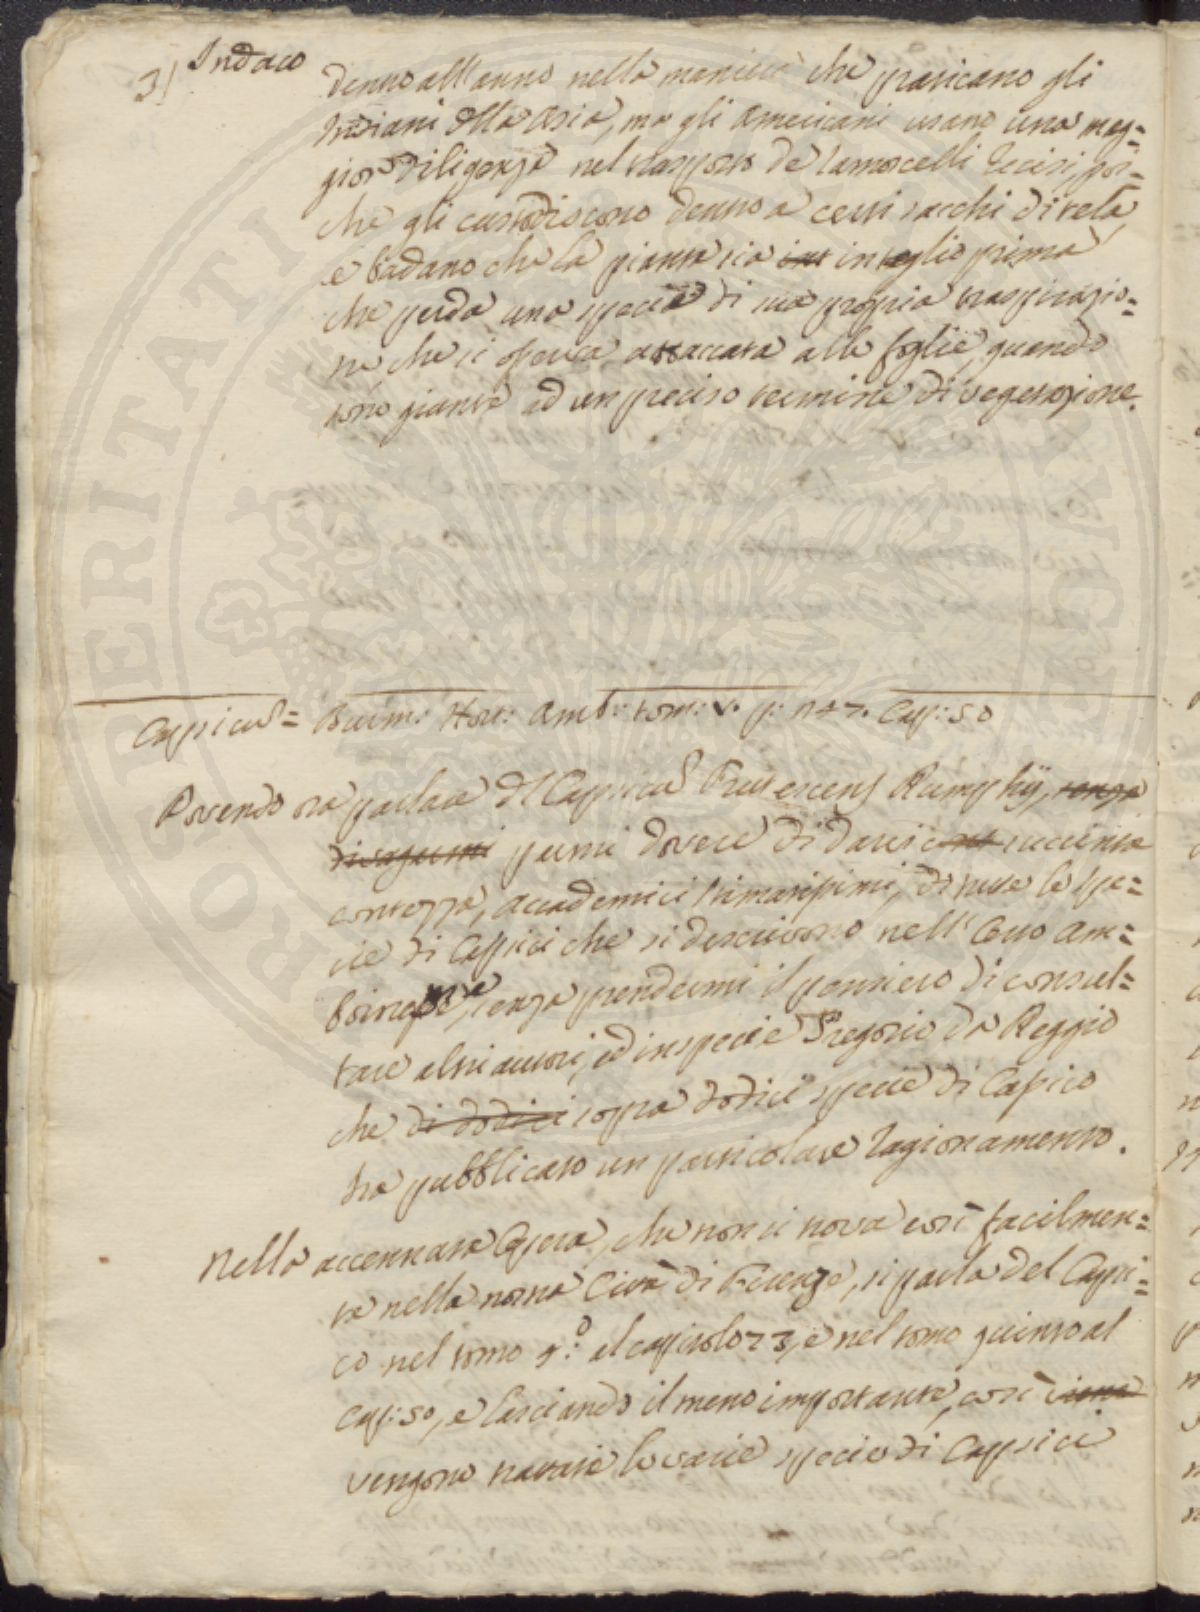 3) Indaco
dentro all'anno nella maniera che praticano gli
Indiani dlla Asia, ma gli Americani usano una mag=
gior diligenza nel trasporto de' ramoscelli recisi, poi=
che gli custodiscono dentro a certi sacchi di tela,
e badano che la pianta sia int in taglio prima
che perda una specie di sua propria traspirazio=
ne che si osserva attaccata alle foglie, quando
sono giante ad un preciso termine di vegetazione.
Capsicus = Burm: Hort: Amb: tom: V. p: 247. Cap: 50
Dovendo ora parlare dl Capsicus Frutescens Rumphij, senza
parmi dovere di darvi succinta
contezza, Accademici stimatissimi, di tutte le spe=
cie di Capsici che si descrivono nell' Orto Am=
boinese, senza prendermi il pensiero di consul=
tare altri autori, ed in specie Gregorio da Reggio
che di dodici sopra dodici specie di Capsico
ha pubblicato un particolare Ragionamento.
Nella accennata Opera, che non si trova così facilmen=
te nella nostra Città di Firenze, si parla del Capsi=
co nel tomo 9:o al capitolo 73, e nel tomo quinto al
cap: 50, e lasciando il meno importante, così
vengono notate le varie specie di Capsici